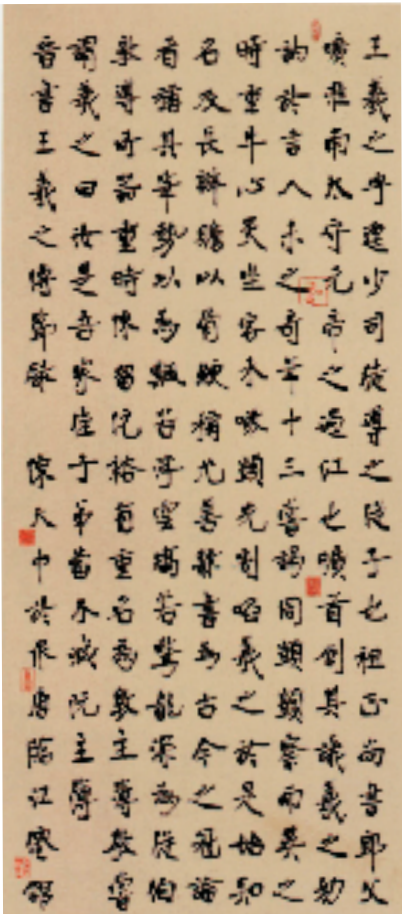 王羲之字逸少司徒導之從子也祖正尚書郎父
曠淮南太守元帝之過江也曠首創其議羲之幼
訥於言人未之奇年十三嘗謁周顗顗察而異之
時重牛心炙坐客未啖顗先割啗羲之於是始知
名及長辯贍以骨鯁稱尤善隸書為古今之冠論
者稱其筆勢以為飄若浮雲矯若驚龍深為從伯
敦導所器重時陳留阮裕有重名為敦主簿敦嘗
謂羲之曰汝是吾家佳子弟當不減阮主簿
晉書王羲之傳節錄 陳天中於唐臨江